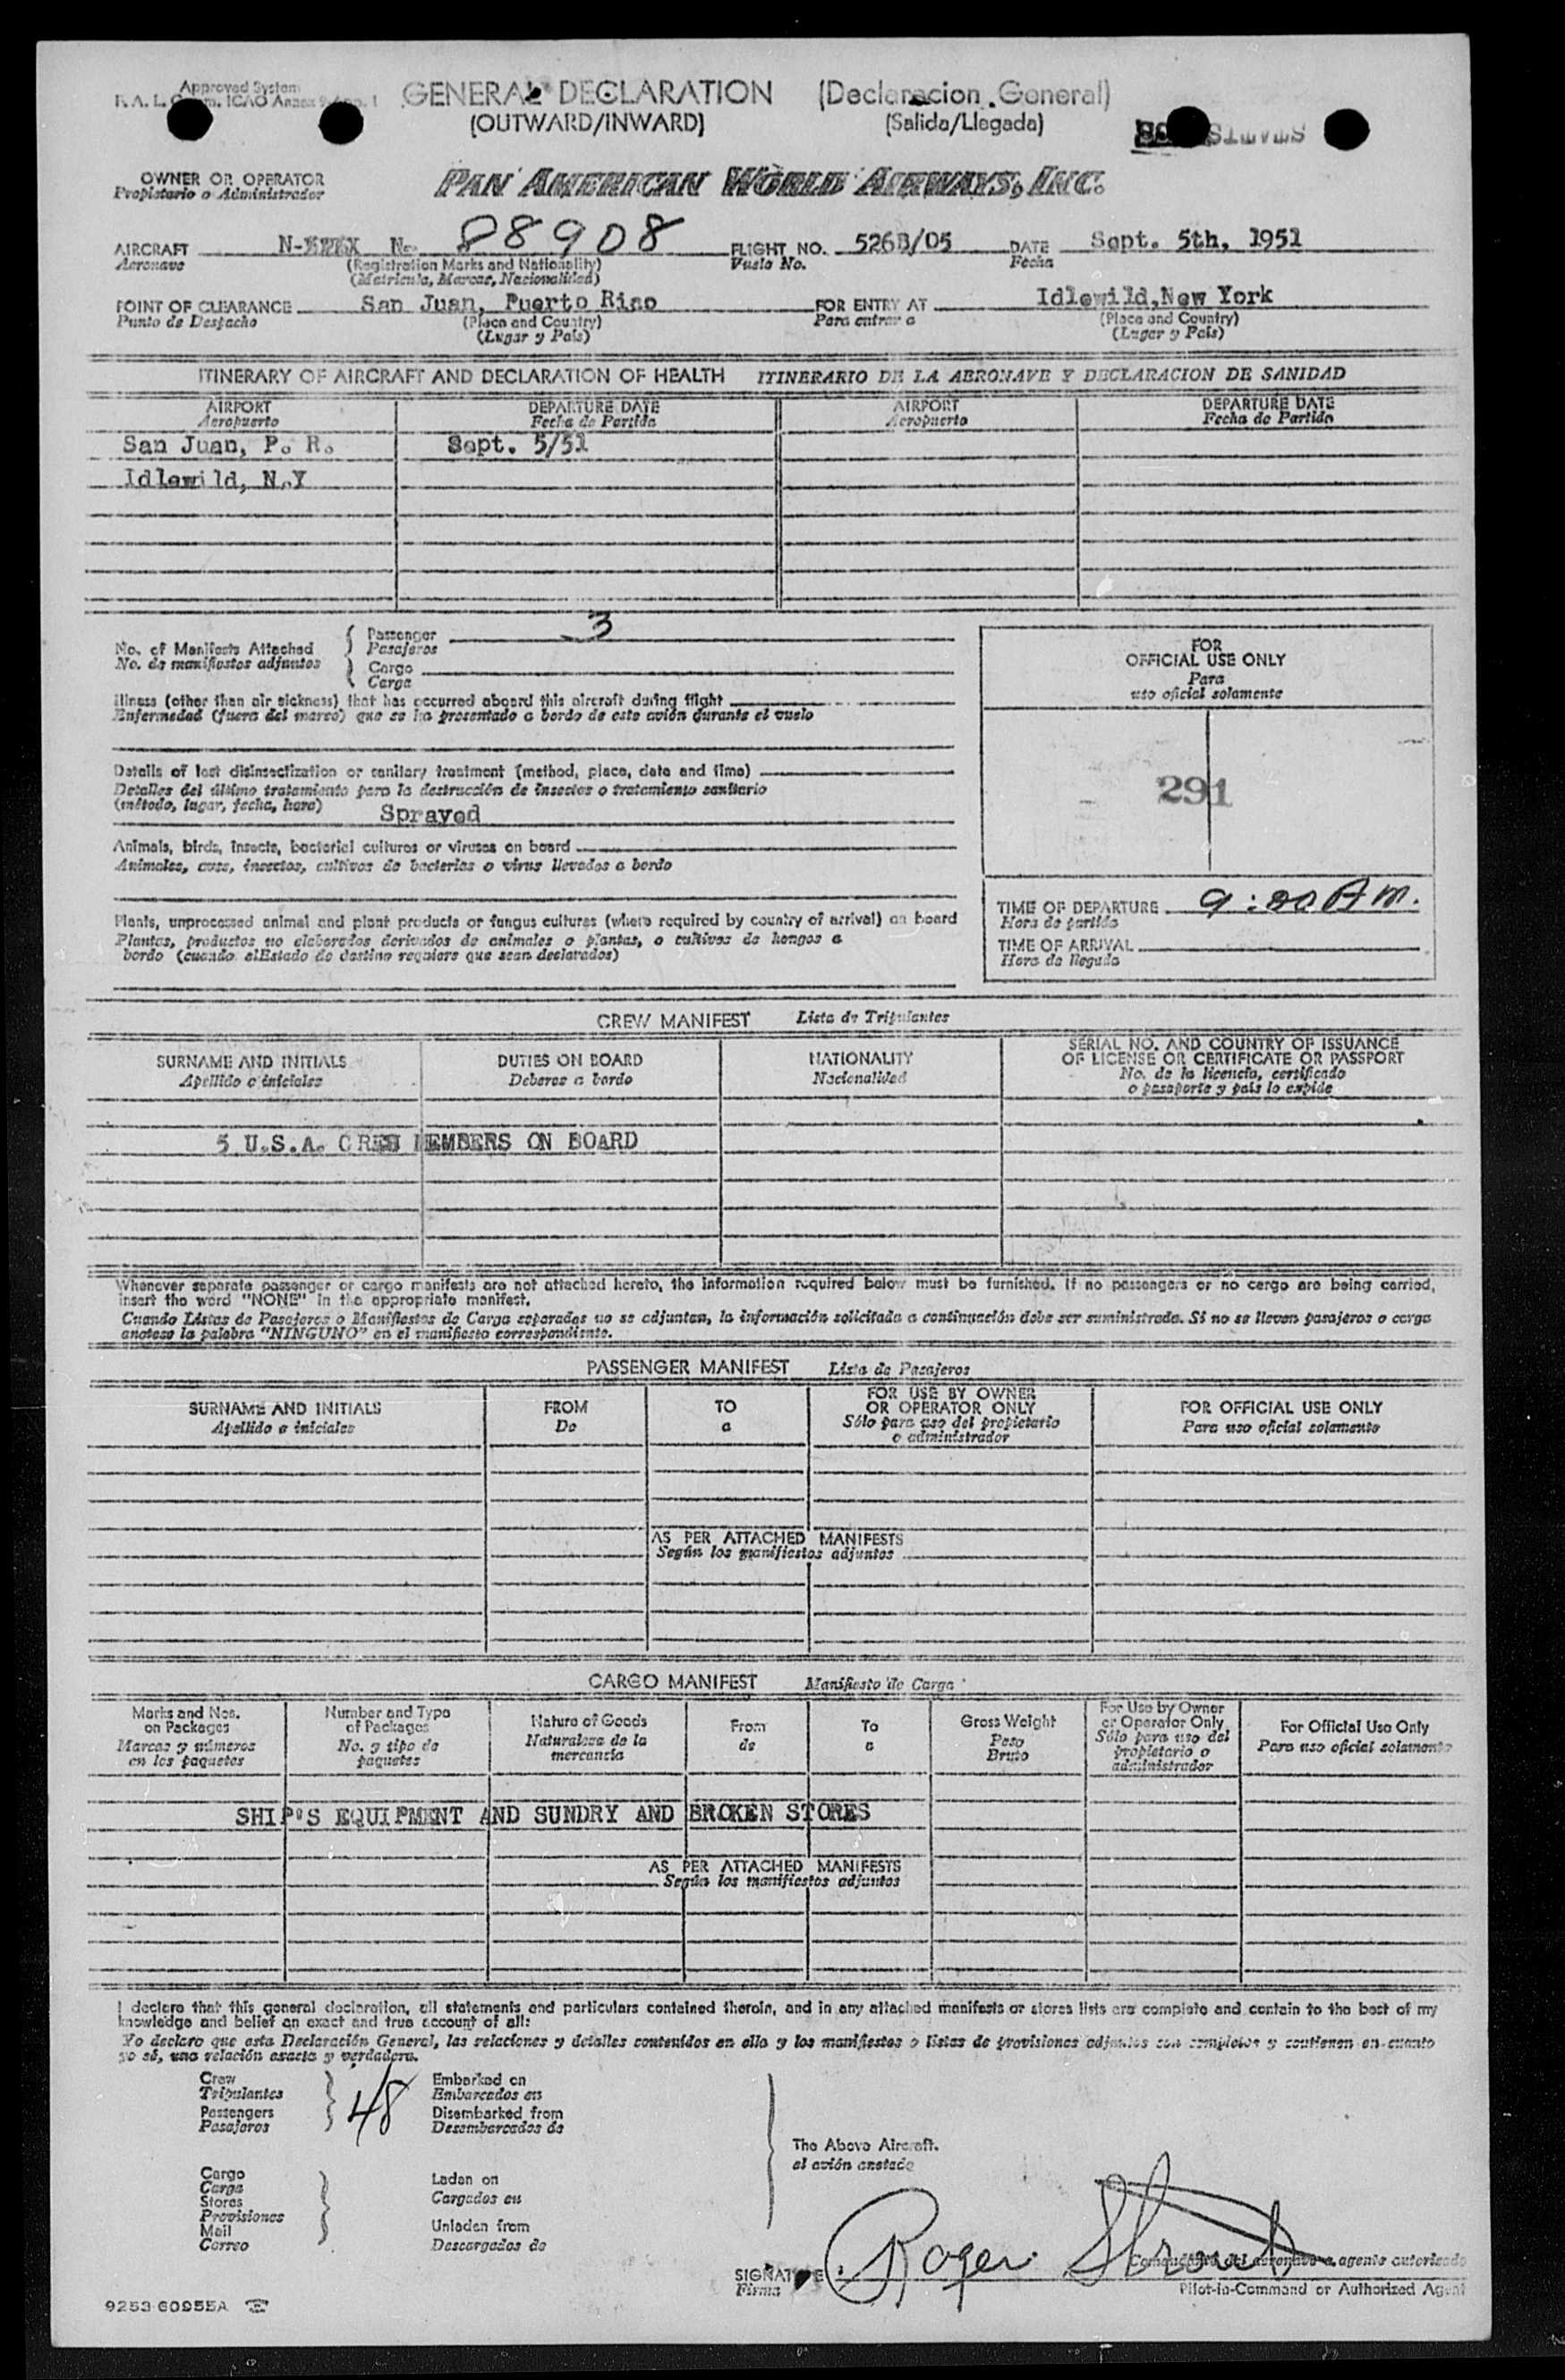 Approved System
GENERAL DECLARATION (Declaracion General)
(OUTWARD/INWARD) (Salida/Llegada)
OWNER OR OPERATOR
Propietario o Administrador
PAN AMERICAN WORLD AIRWAYS, INC.
AIRCRAFT N- No 88908 FLIGHT NO. 526B/05 DATE Sept. 5th, 1951
Aeronave (Registration Marks and Nationality) Vuelo No. Fecha
(Matricula, Marcas, Nacionalidad)
POINT OF CLEARANCE San Juan, Puerto Rico FOR ENTRY AT Idlewild,New York
Punto de Despacho (Place and Country) Para entrar a (Place and Country)
(Lugar y País) (Lugar y País)
ITINERARY OF AIRCRAFT AND DECLARATION OF HEALTH ITINERARIO DE LA AERONAVE Y DECLARACION DE SANIDAD
AIRPORT DEPARTURE DATE AIRPORT DEPARTURE DATE
Aeropuerto Fecha de Partida Aeropuerto Fecha de Partida
San Juan, P. R. Sept. 5/51
Idlewild, N.Y
No. of Manifests Attached
No. de manifiestos adjuntos
Passenger 3
Pasajeros
Cargo
Carga
FOR
OFFICIAL USE ONLY
Para
uso oficial solamente
Illness (other than air sickness) that has occurred aboard this aircraft during flight
Enfermedad (fuera del mareo) que se ha presentado a bordo de este avión durante el vuelo
Details of last disinsectization or sanitary treatment (method, place, date and time)
Detalles del último tratamiento para la destrucción de insectos o tratamiento sanitario
(método, lugar, fecha, hora) Sprayed
291
Animals, birds, insects, bacterial cultures or viruses on board
Animales, aves, insectos, cultivos de bacterias o virus llevados a bordo
Plants, unprocessed animal and plant products or fungus cultures (where required by country of arrival) on board
Plantas, productos no elaborados derivados de animales o plantas, o cultivos de hongos a
bordo (cuando elEstado de destino requiere que sean declarados)
TIME OF DEPARTURE 9:20 A M.
Hora de partida
TIME OF ARRIVAL
Hora de llegada
CREW MANIFEST Lista de Tripulantes
SURNAME AND INITIALS DUTIES ON BOARD NATIONALITY SERIAL NO. AND COUNTRY OF ISSUANCE
OF LICENSE OR CERTIFICATE OR PASSPORT
Apellido e iniciales Deberes a bordo Nacionalidad No. de la licencia, certificado
o pasaporte y país lo expide
5 U.S.A. CREW MEMBERS ON BOARD
Whenever separate passenger or cargo manifests are not attached hereto, the information required below must be furnished. If no passengers or no cargo are being carried,
insert the word "NONE" in the appropriate manifest.
Cuando Listas de Pasajeros o Manifiestos de Carga separadas no se adjuntan, la información solicitada a continuación debe ser suministrada. Si no se llevan pasajeros o carga
anotese la palabra "NINGUNO" en el manifiesto correspondiente.
PASSENGER MANIFEST Lista de Pasajeros
SURNAME AND INITIALS FROM TO FOR USE BY OWNER
OR OPERATOR ONLY FOR OFFICIAL USE ONLY
Apellido e iniciales De a Sólo para uso del propietario
o administrador Para uso oficial solamente
AS PER ATTACHED MANIFESTS
Según los manifiestos adjuntos
CARGO MANIFEST Manifiesto de Carga
Marks and Nos.
on Packages
Marcas y números
en los paquetes
Number and Type
of Packages
No. y tipo de
paquetes
Nature of Goods
Naturaleza de la
mercancía
From
de
To
a
Gross Weight
Peso
Bruto
For Use by Owner
or Operator Only
Sólo para uso del
propietario o
administrador
For Official Use Only
Para uso oficial solamente
SHIP'S EQUIPMENT AND SUNDRY AND BROKEN STORES
AS PER ATTACHED MANIFESTS
Según los manifiestos adjuntos
I declare that this general declaration, all statements and particulars contained therein, and in any attached manifests or stores lists are complete and contain to the best of my
knowledge and belief an exact and true account of all:
Yo declaro que esta Declaración General, las relaciones y detalles contenidos en ella y los manifiestos o listas de provisiones adjuntos son completos y contienen en cuanto
yo sé, una relación exacta y verdadera.
Crew
Tripulantes
Passengers
Pasajeros
48
Embarked on
Embarcados en
Disembarked from
Desembarcados de
The Above Aircraft.
el avión anotado
Cargo
Carga
Stores
Provisiones
Mail
Correo
Laden on
Cargados en
Unladen from
Descargados de
SIGNATURE Roger Stroud
Firma
Comandante del aeronave o agente autorizado
Pilot-in-Command or Authorized Agent
9253 60955A